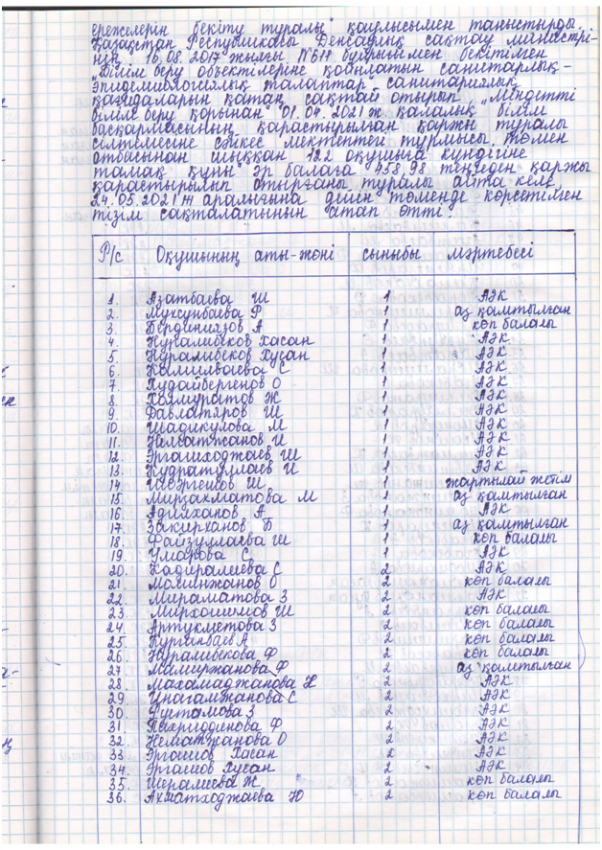 ережелерін бекіту туралы қаулысымен таныстырды.
Қазақстан Республикасы Денсаулық сақтау министрі-
нің 16.08.2017 жылғы №611 бұйрығымен бекітілген
„Білім беру объектілеріне қойылатын санитарлық-
эпидемиологиялық талаптар" санитариялық
қағидаларын қатаң сақтай отырып „Міндетті
білім беру қорынан" 01.04.2021 ж қалалық білім
басқармасының қарастырылған қаржы туралы
сілтемесіне сәйкес мектептегі тұрмысы төмен
отбасынан шыққан 122 оқушыға күндегіне
тамақ құны әр балаға 458,98 теңгеден қаржы
қарастырылып отырғаны туралы айта келе,
24.05.2021 ж аралығына дейін төменде көрсетілген
тізім сақталатынын атап өтті.
Р/с Оқушының аты-жөні сыныбы мәртебесі
1. Азатбаева Ш 1 АӘК
2. Мұксунбаева Ф 1 аз қамтылған
3. Бердиниязов А 1 көп балалы
4. Нуралибеков Хасан 1 АӘК
5. Нуралибеков Хусан 1 АӘК
6. Камилбаева С 1 АӘК
7. Худайбергенов О 1 АӘК
8. Холмуратов Ж 1 АӘК
9. Давлатяров Ш 1 АӘК
10. Шадикулова М 1 АӘК
11. И 1 АӘК
12. Эргашходжаев Ш 1 АӘК
13. Кудратуллаев И 1 АӘК
14. Ш 1 жартылай жетім
15. Мирзахматова М 1 аз қамтылған
16. Адилханов А 1 АӘК
17. Закирханов Б 1 аз қамтылған
18. Файзуллаева Ш 1 көп балалы
19. Умарова С 1 АӘК
20. Кадиралиева С 2 АӘК
21. О 2 көп балалы
22. Мираматова З 2 АӘК
23. Мирхошимов Ш 2 көп балалы
24. Артукметова З 2 көп балалы
25. Курганбаев А 2 көп балалы
26. Нуралибекова Ф 2 көп балалы
27. Мамиржанова Ф 2 аз қамтылған
28. Махамаджанова Н 2 АӘК
29. Инагамжанова С 2 АӘК
30. З 2 АӘК
31. Пахриддинова Ф 2 АӘК
32. Нематжанова О 2 АӘК
33. Эргашов Хасан 2 АӘК
34. Эргашов Хусан 2 АӘК
35. Шералиева Ж 2 көп балалы
36. Ахматходжаева Ю 2 көп балалы